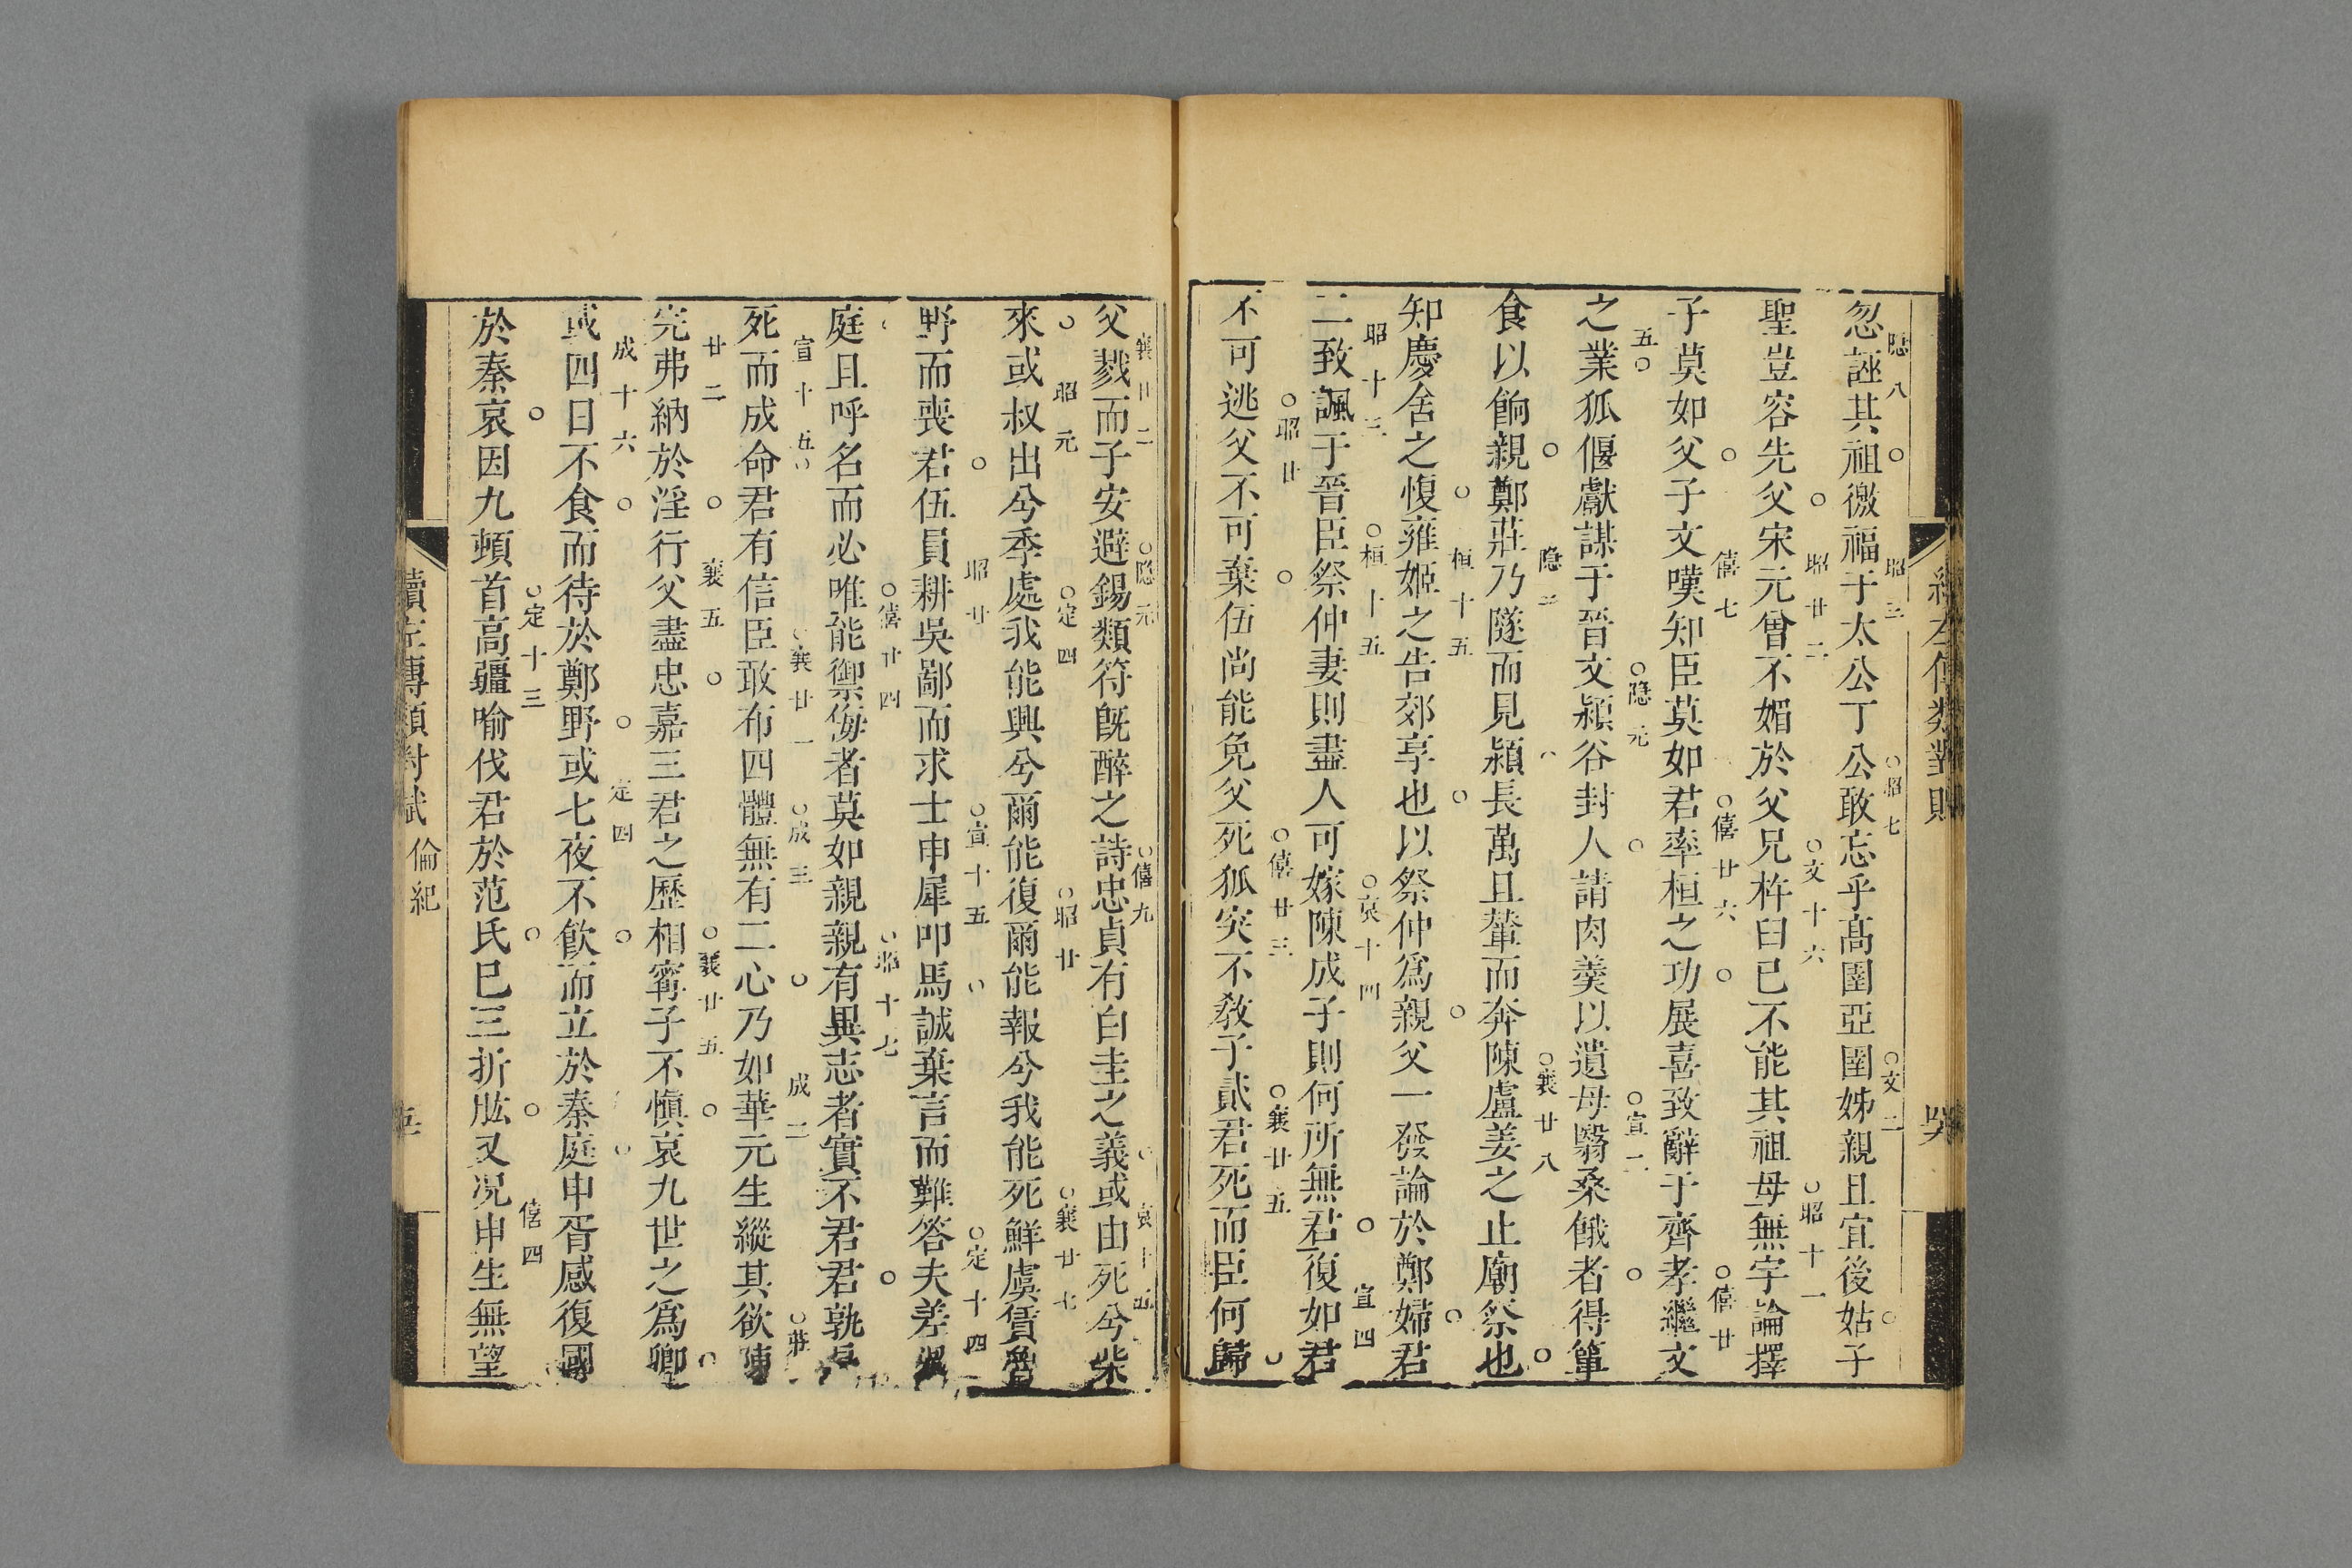 忽誣其祖徼福于太公丁公敢忘乎高圉亞圉姊親且宜後姑子
隱八 昭三 昭七 文二
聖豈容先父宋元曾不媚於父兄杵臼已不能其祖母無宇論擇
昭廿二 文十六 昭十一
子莫如父子文嘆知臣莫如君率桓之功展喜致辭于齊孝繼文
僖七 僖廿六 僖廿
之業狐偃獻謀于晉文潁谷封人請肉羹以遺母翳桑餓者得簞
五 隱元 宣二
食以餉親鄭莊乃隧而見潁長萬且輦而奔陳盧姜之止廟祭也
隱 襄廿八
知慶舍之愎雍姬之告郊享也以祭仲爲親父一發論於鄭婦君
桓十五
二致諷于晉臣祭仲妻則盡人可嫁陳成子則何所無君復如君
昭十三 桓十五 哀十四 宣四
不可逃父不可棄伍尚能免父死狐突不敎子貳君死而臣何歸
昭廿 僖廿三 襄廿五
父戮而子安避錫類符旣醉之詩忠貞有白圭之義或由死兮柴
襄廿二 隱元 僖九 哀十五
來或叔出兮季處我能興兮爾能復爾能報兮我能死鮮虞賃
昭元 定四 昭廿 襄廿七
野而喪君伍員耕吳鄙而求士申犀叩馬誠棄言而難答夫差
昭廿 宣十五 定十四
庭且呼名而必唯能禦侮者莫如親親有異志者實不君君孰
僖廿四 昭十七
死而成命君有信臣敢布四體無有二心乃如華元生縱其欲陳
宣十五 襄廿一 成三 成二 莊
完弗納於淫行父盡忠嘉三君之歷相寗子不愼哀九世之爲卿
廿二 襄五 襄廿五
或四日不食而待於鄭野或七夜不飲而立於秦庭申胥感復國
成十六 定四
於秦哀因九頓首高彊喻伐君於范氏巳三折肱又况申生無望
定十三 僖四
續左傳類對賦 倫紀